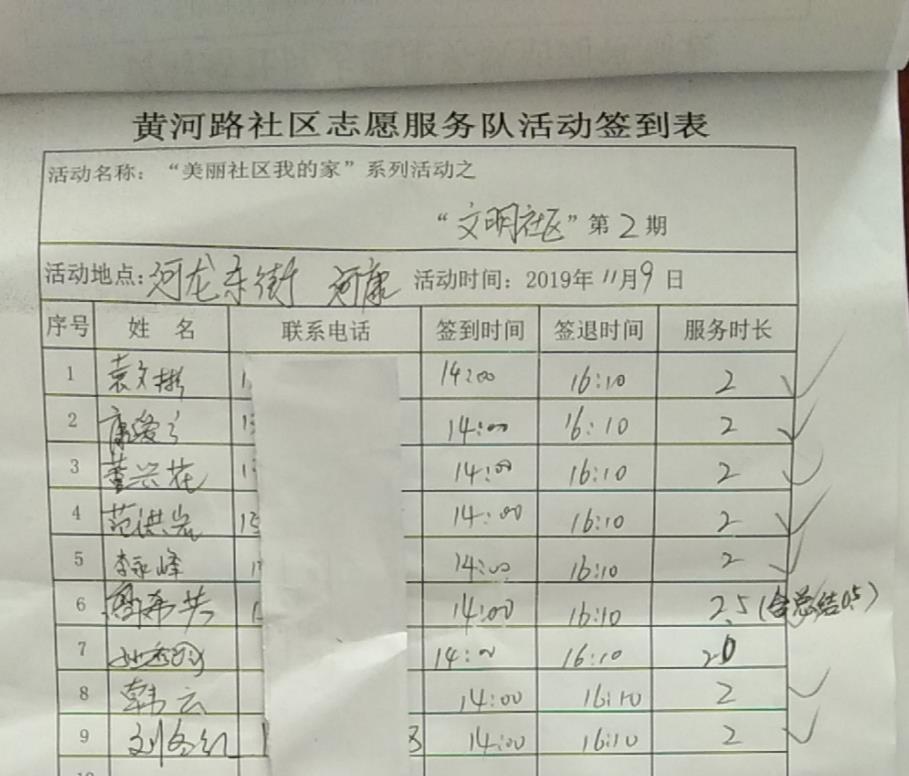 黄河路社区志愿服务队活动签到表
活动名称：“美丽社区我的家”系列活动之
“文明社区”第2期
活动地点：河龙东街 河康 活动时间：2019年11月9日
序号 姓 名 联系电话 签到时间 签退时间 服务时长
1 袁文彬 14:00 16:10 2
2 14:00 16:10 2
3 董兴花 14:00 16:10 2
4 范洪岩 13 14:00 16:10 2
5 李永峰 14:00 16:10 2
6 14:00 16:10 2.5（含总结0.5）
7 14:00 16:10 2.0
8 韩云 14:00 16:10 2
9 3 14:00 16:10 2